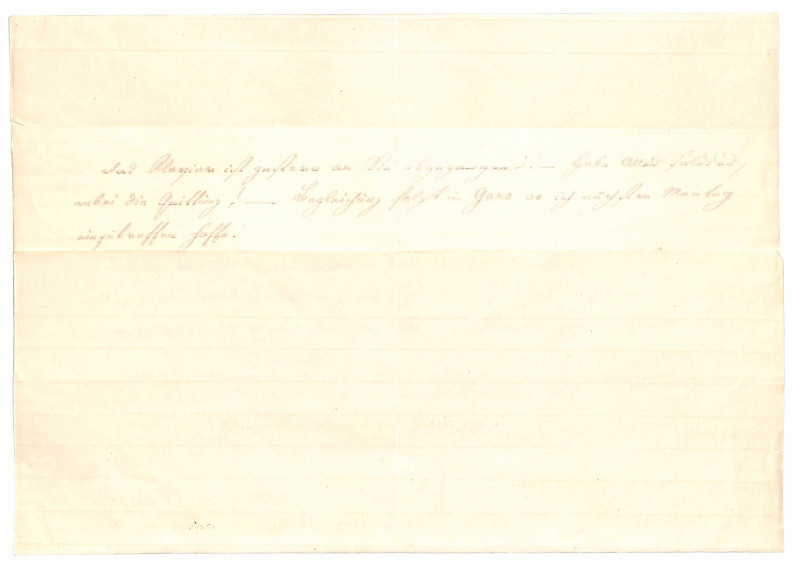 Das Clavier ist gestern an Sie abgegangen! — Habe Alles saldirt,
anbei die Quittung! — Begleichung folgt in Gera wo ich nächsten Montag
einzutreffen hoffe.